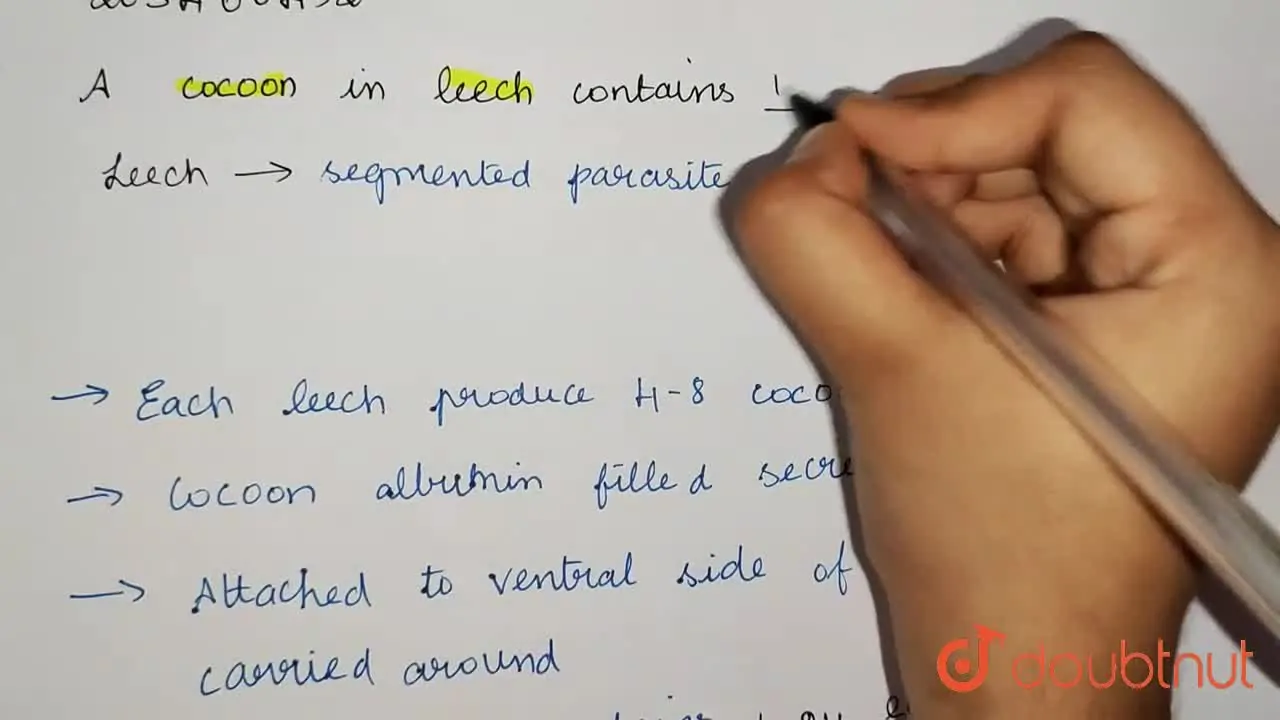 A cocoon in leech contains 1
Leech → segmented parasite
→ Each leech produce 4-8 coco
→ Cocoon albumin filled secre
→ Attached to ventral side of
carried around
doubtnut